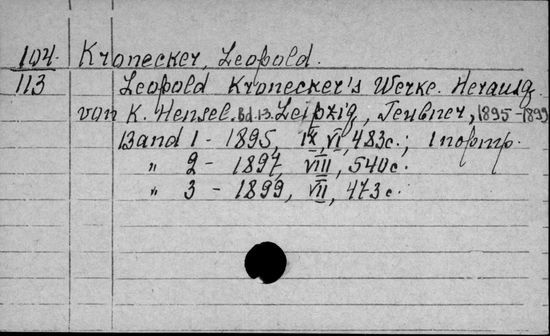 104. Kronecker, Leopold.
113 Leopold Kronecker's Werke. Herausg.
von K. Hensel. Bd.1-3. Leipzig, Teubner, 1895-1899
Band 1 - 1895, IX, VI, 483c.; 1 портр.
" 2 - 1897, VIII, 540c.
" 3 - 1899, VII, 473c.